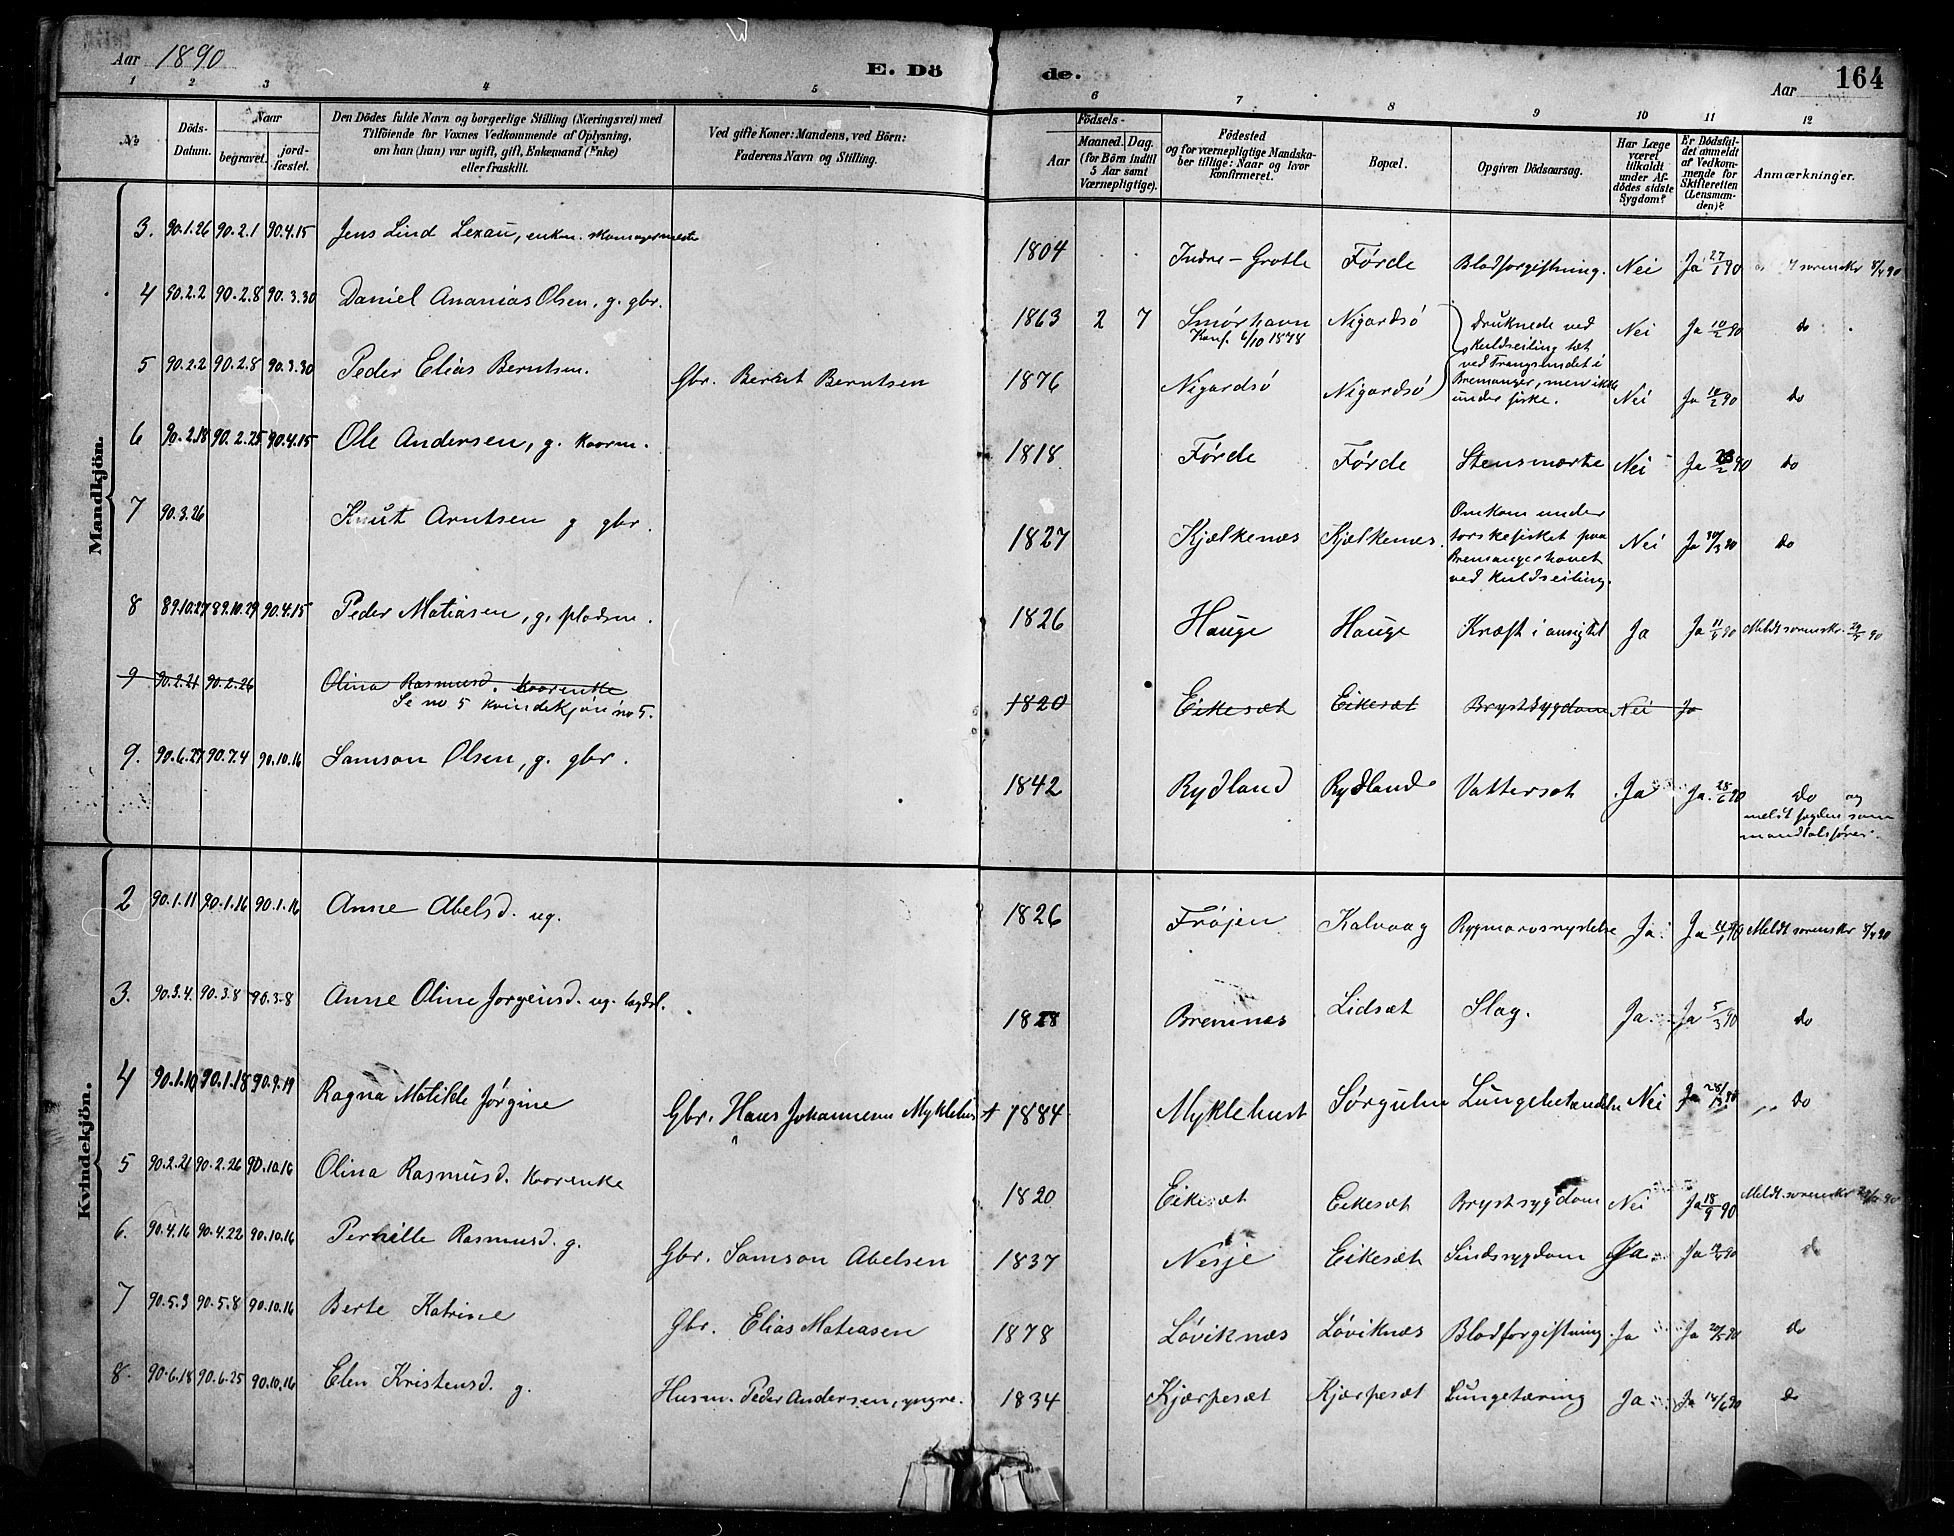 Aar 1890
E. Döde.
Aar
164
1 2 3 4 5 6 7 8 9 10 11 12
No
Döds-Datum.
Naar
begravet.
jord-fæstet.
Den Dödes fulde Navn og borgerlige Stilling (Næringsvei) med
Tilföiende for Voxnes Vedkommende af Oplysning,
om han (hun) var ugift, gift, Enkemand (Enke)
eller fraskilt.
Ved gifte Koner: Mandens, ved Börn:
Faderens Navn og Stilling.
Födsels-
Aar
Maaned. Dag.
(for Börn indtil
5 Aar samt
Værnepligtige).
Födested
og for værnepligtige Mandska-
ber tillige: Naar og hvor
konfirmeret.
Bopæl.
Opgiven Dödsaarsag.
Har Læge
været
tilkaldt
under Af-
dödes sidste
Sygdom?
Er Dödsfal-
det anmeldt
af Vedkom-
mende for
Skifteretten
(Lensman-
den)?
Anmærkninger.
Mandkjön.
3. 90.1.26 90.2.1 90.4.15 Jens Lind Lexau, enkem. 1804 Indre-Grotle Førde Blodforgiftning. Nei Ja 27/1 90 sorenskr 8/4 90
4 90.2.2 90.2.8 90.3.30 Daniel Ananias Olsen, g. gbr. 1863 2 7 Smørhavn Nigardsö Druknede ved Nei Ja 10/2 90 do
Konf. 6/10 1878
kuldseiling tæt
ved Frangsundet i
5 90.2.2 90.2.8 90.3.30 Peder Elias Berntsen. Gbr. Bernt Berntsen 1876 Nigardsö Nigardsö Bremanger, men ikke Nei Ja 10/2 90 do
under fiske.
6 90.2.18 90.2.25 90.4.15 Ole Andersen, g. kaarm. 1818 Førde Førde Stensmerte Nei Ja 90 do
7 90.3.26 Knut Arntsen g gbr. 1827 Kjælkenæs Kjælkenæs. Omkom under Nei Ja 30/3 90 do
torskefisket paa
Bremangerhavet
ved kuldseiling.
8 89.10.27 89.10.29 90.4.15 Peder Matiasen, g. pladsm. 1826 Hauge Hauge Kræft i ansigtet Ja Ja 90 Meldt sorenskr. 90
9 90.2.21 90.2.26 Olina Rasmusd. kaarenke 1820 Eikesæt Eikesæt Brystsygdom Nei Ja
Se no 5 kvindekjön no 5.
9. 90.6.27 90.7.4 90.10.16 Samson Olsen, g. gbr. 1842 Rydland Rydland Vattersot Ja Ja 28/6 90 do og
meldt fogden som
mandtalsfører.
Kvindekjön.
2 90.1.11 90.1.16 90.1.16 Anne Abelsd. ug. 1826 Frøjen Kalvaag Rygmarvsnydelse Ja Ja 90 Meldt sorenskr 8/4 90
3. 90.3.4. 90.3.8 90.3.8 Anne Oline Jørgensd. ug. lægdsl. 1828 Bremnæs Lidsæt Slag. Ja. Ja 5/3 90 do
4 90.1.10 90.1.18 90.9.19 Ragna Matilde Jørgine Gbr. Hans Johannesen Myklebust 1884 Myklebust Sørgulen Lungebetændelse Nei Ja 90 „ do
5 90.2.21 90.2.26 90.10.16 Olina Rasmusd. kaarenke 1820 Eikesæt Eikesæt Brystsygdom Nei Ja 18/9 90 Meldt sorenskr 90
6. 90.4.16 90.4.22 90.10.16 Pernille Rasmusd. g. Gbr. Samson Abelsen 1837 Nesje Eikesæt Sindssygdom Ja Ja 90 d
7 90.5.3 90.5.8 90.10.16 Berte Katrine Gbr. Elias Matiasen 1878 Løviknæs Løviknæs Blodforgiftning. Ja Ja 20/5 90 do
8. 90.6.18 90.6.25 90.10.16 Elen Kristensd. g. Husm. Peder Andersen, yngre. 1834 Kjærpesæt Kjærpesæt Lungetæring Ja Ja 14/6 90 do